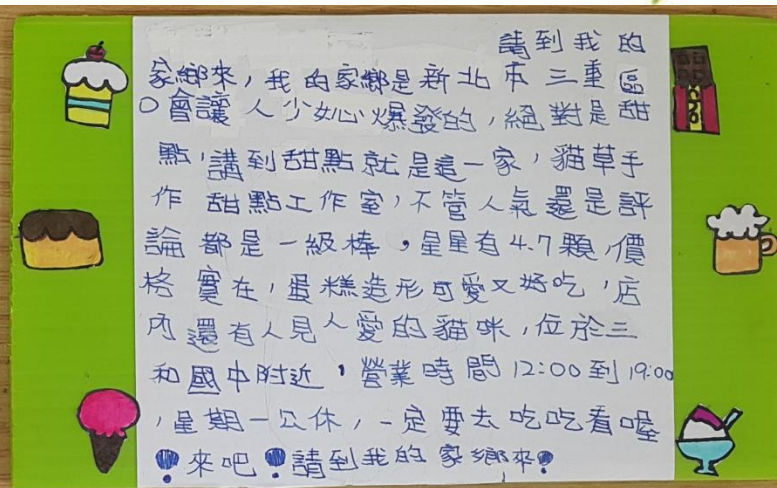 請到我的
家鄉來，我的家鄉是新北市三重區
。會讓人少女心爆發的，絕對是甜
點，講到甜點就是這一家，貓草手
作甜點工作室，不管人氣還是評
論都是一級棒，星星有4.7顆，價
格實在，蛋糕造形可愛又好吃，店
內還有人見人愛的貓咪，位於三
和國中附近，營業時間12:00到19:00
，星期一公休，一定要去吃吃看喔
！來吧！請到我的家鄉來！